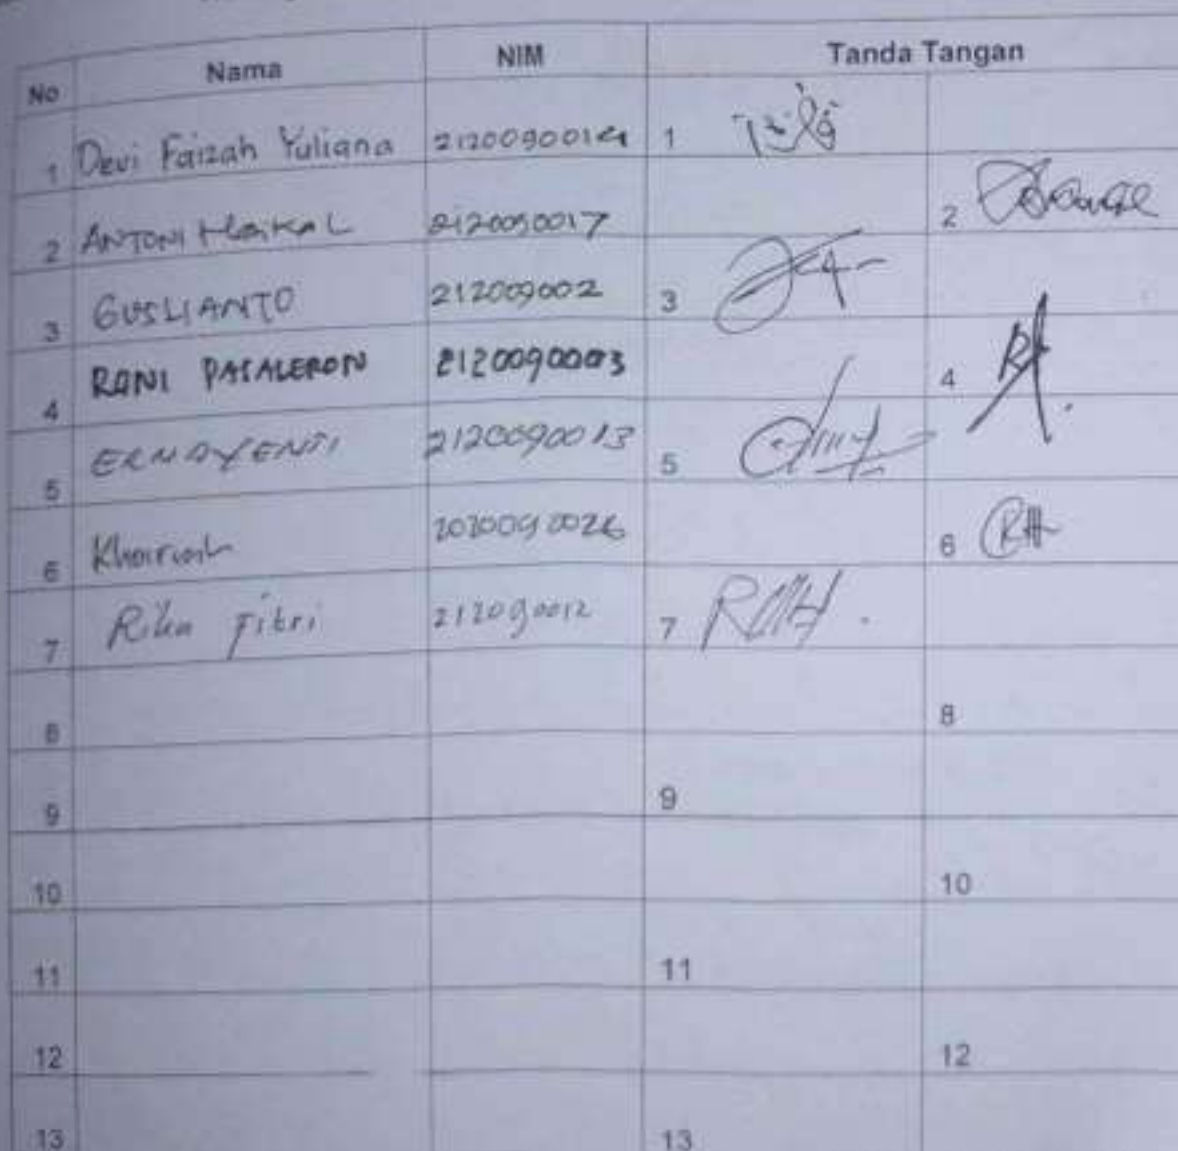 No Nama NIM Tanda Tangan
1 Devi Faizah Yuliana 2120090014 1
2 ANTONI Haikal 2120090017 2
3 GUSLIANTO 212009002 3
4 RONI PASALERON 2120090003 4
5 ERNAYENTI 2120090013 5
6 Khairiah 2020090026 6
7 Rika Fitri 212090012 7
8 8
9 9
10 10
11 11
12 12
13 13